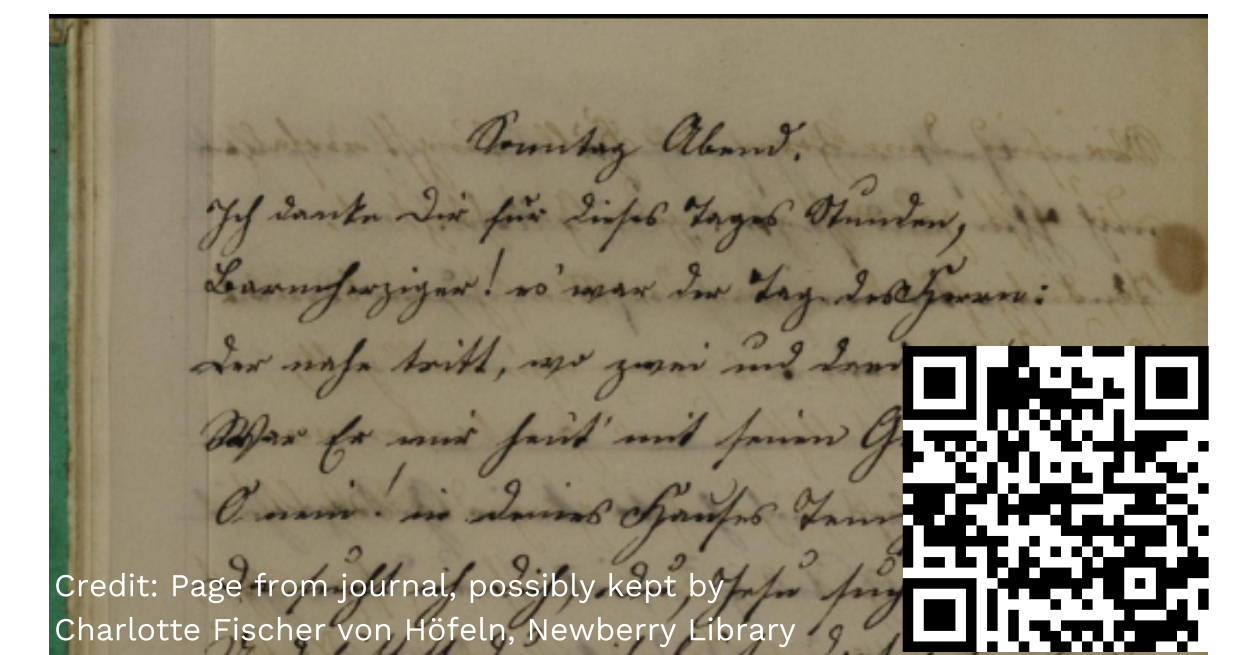 Sonntag Abend.
Ich danke Dir für dieses Tages Stunden,
Barmherziger! es war der Tag des Herrn:
Der nahe tritt, wo zwei und drei
War Er mir heut' mit seinen
O nein! in deines Hauses
Da sucht' ich dich, du, Jesu
Credit: Page from journal, possibly kept by
Charlotte Fischer von Höfeln, Newberry Library